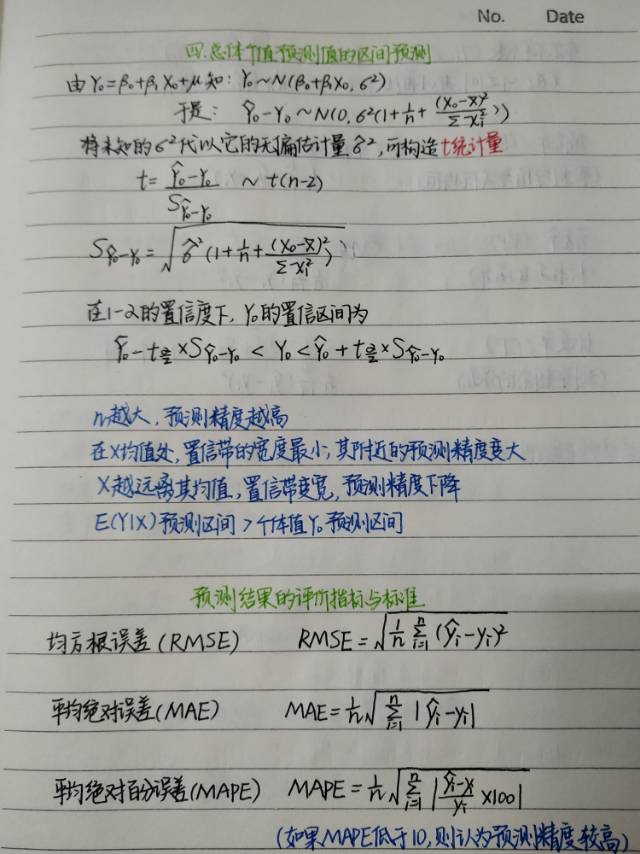 No. Date
四.总体个值预测值的区间预测
由Y₀=β₀+β₁X₀+μ知: Y₀~N(β₀+β₁X₀, σ²)
于是: Ŷ₀-Y₀~N(0, σ²(1+1/n+(X₀-X̄)²/Σxᵢ²))
将未知的σ²代以它的无偏估计量σ̂²,可构造t统计量
t=(Ŷ₀-Y₀)/S_{Ŷ₀-Y₀} ~ t(n-2)
S_{Ŷ₀-Y₀}=√(σ̂²(1+1/n+(X₀-X̄)²/Σxᵢ²))
在1-α的置信度下,Y₀的置信区间为
Ŷ₀-t_{α/2}×S_{Ŷ₀-Y₀} < Y₀ < Ŷ₀+t_{α/2}×S_{Ŷ₀-Y₀}
n越大,预测精度越高
在X均值处,置信带的宽度最小,其附近的预测精度变大
X越远离其均值,置信带变宽,预测精度下降
E(Y|X)预测区间>个体值Y₀预测区间
预测结果的评价指标与标准
均方根误差(RMSE) RMSE=√(1/n Σ_{i=1}^{n}(ŷᵢ-yᵢ)²)
平均绝对误差(MAE) MAE=1/n√(Σ_{i=1}^{n}|ŷᵢ-yᵢ|)
平均绝对百分误差(MAPE) MAPE=1/n√(Σ_{i=1}^{n}|(ŷᵢ-yᵢ)/yᵢ×100|)
(如果MAPE低于10,则认为预测精度较高)